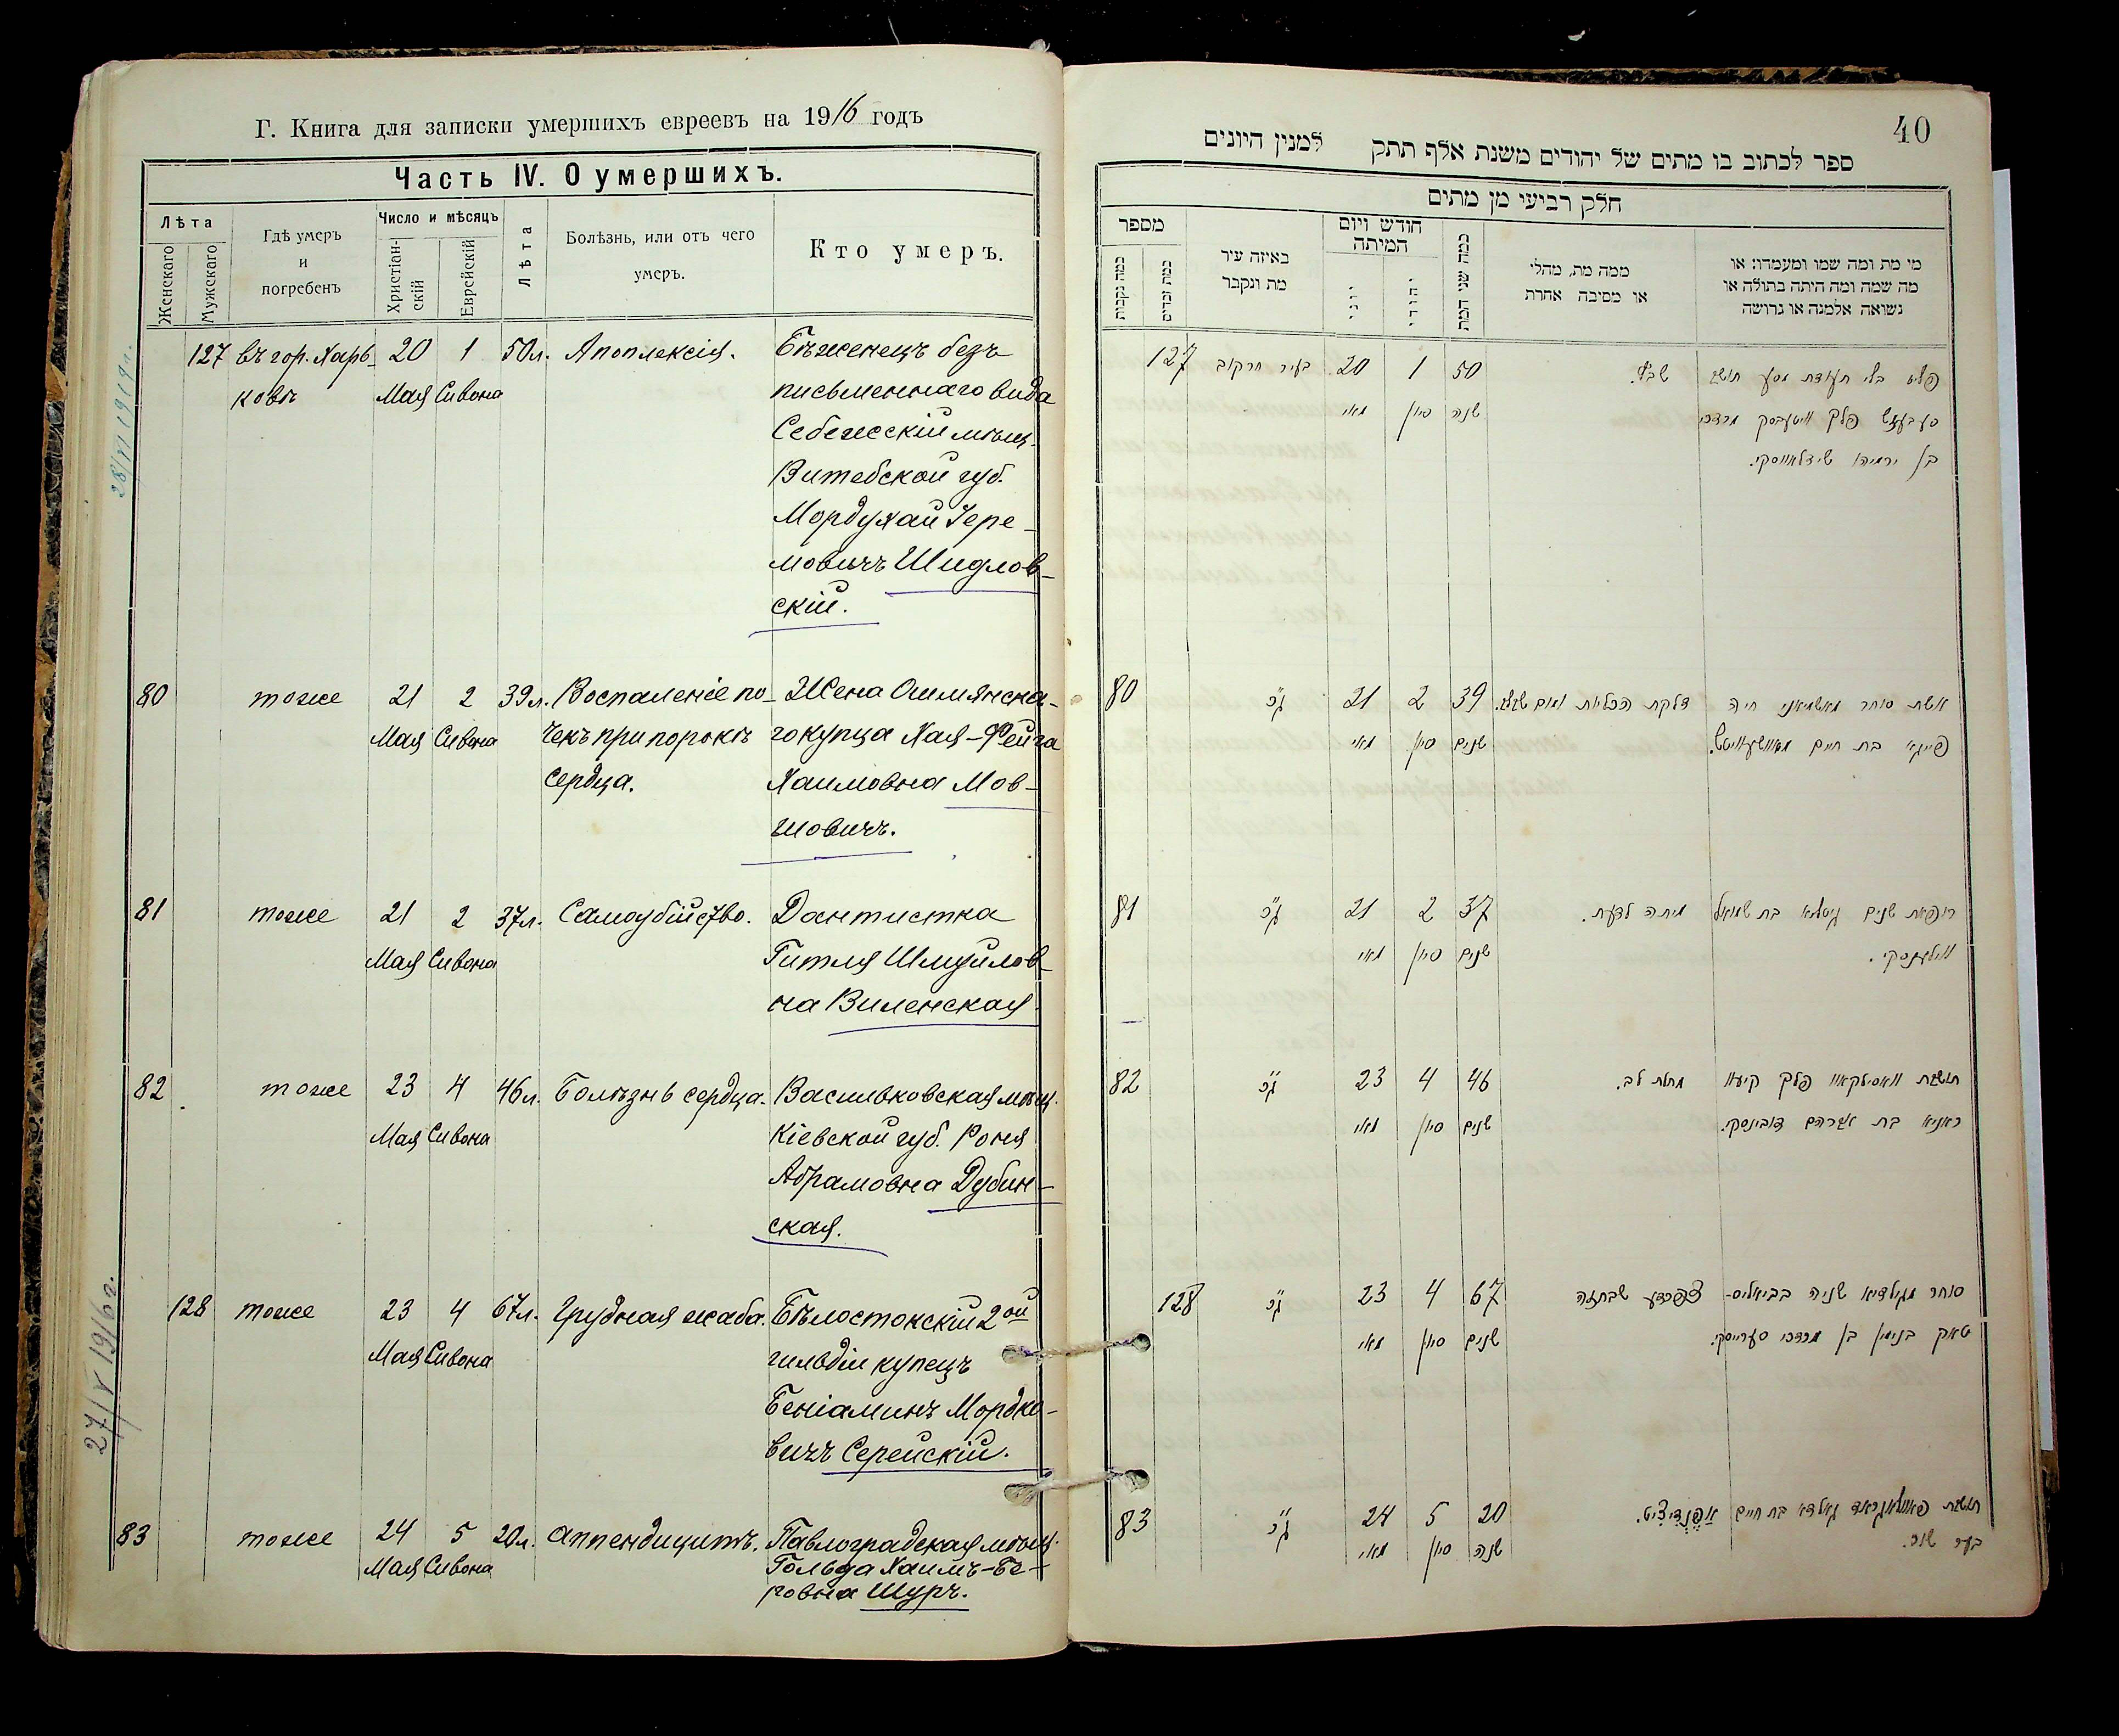 Г. Книга для записки умершихъ евреевъ на 1916 годъ
Часть IV. О умершихъ.
Лѣта
Женскаго
Мужскаго
Гдѣ умеръ
и
погребенъ
Число и мѣсяцъ
Христіан-
скій
Еврейскій
Лѣта
Болѣзнь, или отъ чего
умеръ.
Кто умеръ.
127 въ гор. Харь- 20 1 50л. Апоплексія. Бѣженецъ безъ
ковѣ Мая Сивона письменнаго вида
Себежскій мѣщ.
Витебской губ.
Мордухай Іере-
мовичъ Шидлов-
скій.
80 тоже 21 2 39л. Воспаленіе по- Жена Ошмянска-
Мая Сивона чекъ при порокѣ го купца Хая-Фейга
сердца. Хаимовна Мов-
шовичъ.
81 тоже 21 2 37л. Самоубійство. Дантистка
Мая Сивона Гитля Шмуйлов-
на Виленская.
82 тоже 23 4 46л. Болѣзнь сердца. Васильковская мѣщ.
Мая Сивона Кіевской губ. Роня
Абрамовна Дубин-
ская.
128 тоже 23 4 67л. Грудная жаба. Бѣлостокскій 2ой
Мая Сивона гильдіи купецъ
Беніаминъ Мордко-
вичъ Серейскій.
83 тоже 24 5 20л. Аппендицитъ. Павлоградская мѣщ.
Мая Сивона Гольда Хаимъ-Бе-
ровна Шуръ.
28/VI 1919г.
27/V 1916г.
40
ספר לכתוב בו מתים של יהודים משנת אלף תתק למנין היונים
חלק רביעי מן מתים
מספר
כמה נקבות
כמה זכרים
באיזה עיר
מת ונקבר
חודש ויום
המיתה
יוני
יהודי
כמה שני המת
ממה מת, מחלי
או מסיבה אחרת
מי מת ומה שמו ומעמדו: או
מה שמה ומה היתה בתולה או
נשואה אלמנה או גרושה
127 בעיר חרקוב 20 1 50 שבץ. פליט בלי תעודת מסע תושב
מאי סיון שנה סעבעזש פלך וויטעבסק מרדכי
בן ירמיהו שידלאווסקי.
80 ג"כ 21 2 39 דלקת הכליות אשת סוחר מאשמיאני חיה
מאי סיון שנים פייגא בת חיים מאוושעוויטש.
81 ג"כ 21 2 37 מיתה לדעת. רופאת שנים גיטלא בת שמואל
מאי סיון שנים ווילענסקי.
82 ג"כ 23 4 46 מחלת לב. תושבת וואסילקאוו פלך קיעוו
מאי סיון שנים ראניא בת אברהם דובינסקי.
128 ג"כ 23 4 67 צפרדע שבחזה סוחר מגילדיא שניה בביאליס-
מאי סיון שנים טאק בנימין בן מרדכי סערייסקי.
83 ג"כ 24 5 20 אפנדיציט. תושבת פאוולאגראד גאלדא בת חיים
מאי סיון שנה בער שור.